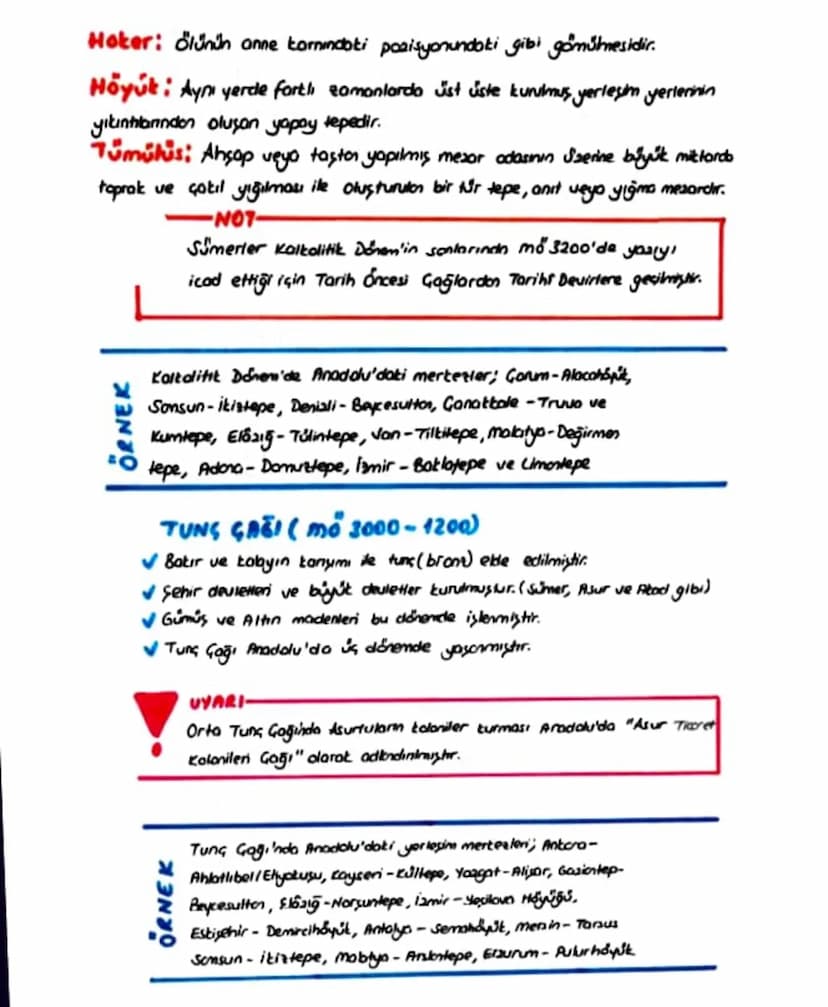 Hoker: Ölünün anne karnındaki pozisyonundaki gibi gömülmesidir.
Höyük: Aynı yerde farklı zamanlarda üst üste kurulmuş yerleşim yerlerinin
yıkıntılarından oluşan yapay tepedir.
Tümülüs: Ahşap veya taştan yapılmış mezar odasının üzerine büyük miktarda
toprak ve çakıl yığılması ile oluşturulan bir tür tepe, anıt veya yığma mezardır.
NOT
Sümerler Kalkolitik Dönem'in sonlarında MÖ 3200'de yazıyı
icad ettiği için Tarih Öncesi Çağlardan Tarihi Devirlere geçilmiştir.
ÖRNEK
Kalkolitik Dönem'de Anadolu'daki merkezler; Çorum-Alacahöyük,
Samsun-İkiztepe, Denizli-Beycesultan, Çanakkale-Truva ve
Kumtepe, Elazığ-Tülintepe, Van-Tilkitepe, Malatya-Değirmen
tepe, Adana-Domuztepe, İzmir-Baklatepe ve Limantepe
TUNÇ ÇAĞI (MÖ 3000-1200)
✓ Bakır ve kalayın karışımı ile tunç (bronz) elde edilmiştir.
✓ Şehir devletleri ve büyük devletler kurulmuştur. (Sümer, Asur ve Akad gibi)
✓ Gümüş ve Altın madenleri bu dönemde işlenmiştir.
✓ Tunç Çağı Anadolu'da üç dönemde yaşanmıştır.
UYARI
Orta Tunç Çağı'nda Asurluların koloniler kurması Anadolu'da "Asur Ticaret
Kolonileri Çağı" olarak adlandırılmıştır.
ÖRNEK
Tunç Çağı'nda Anadolu'daki yerleşim merkezleri; Ankara-
Ahlatlıbel/Etiyokuşu, Kayseri-Kültepe, Yozgat-Alişar, Gaziantep-
Beycesultan, Elazığ-Norşuntepe, İzmir-Yeşilova Höyüğü,
Eskişehir-Demircihöyük, Antalya-Semahöyük, Mersin-Tarsus
Samsun-İkiztepe, Malatya-Arslantepe, Erzurum-Pulurhöyük